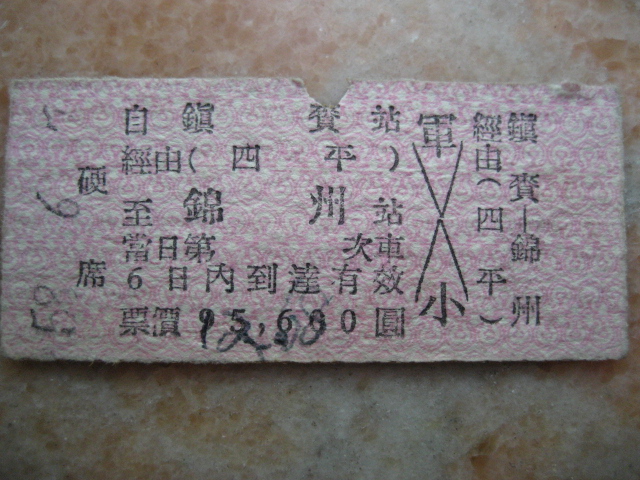 自鎮賚站
經由(四平)
至錦州站
當日第 次車
6日內到達有效
票價95,600圓
硬席
軍
小
鎮賚—錦州
經由(四平)